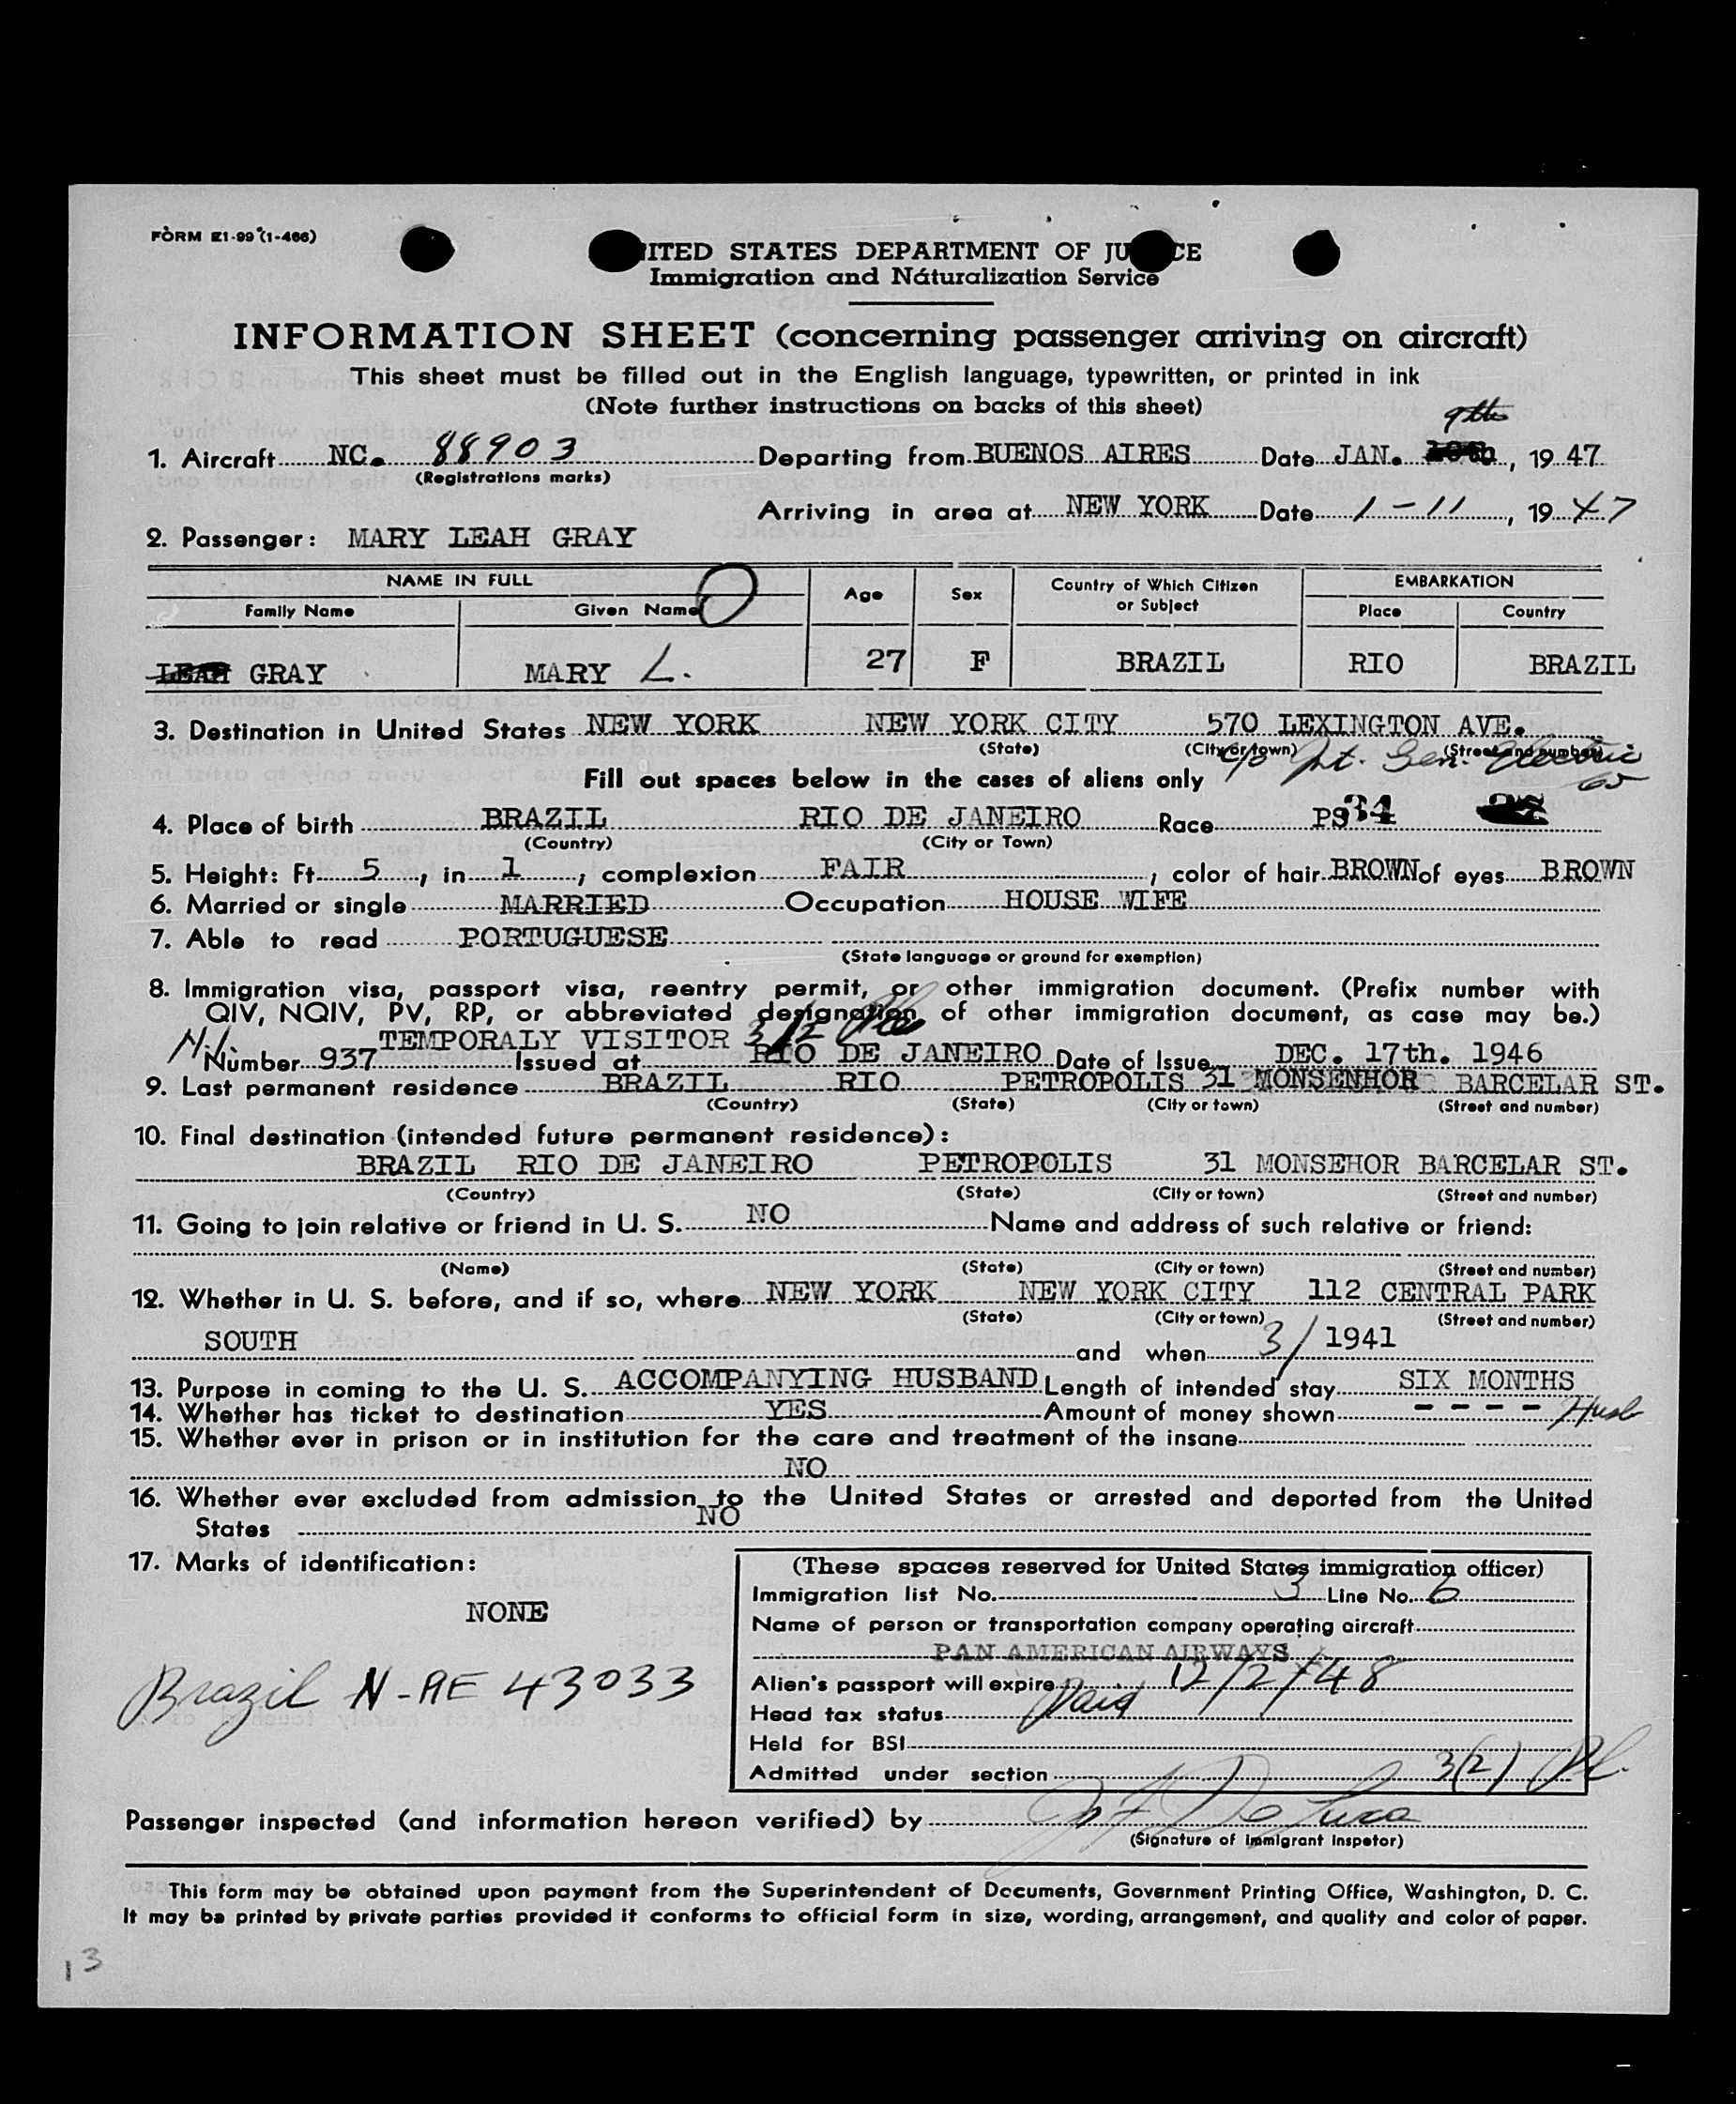 FORM E1-99 (1-466)
UNITED STATES DEPARTMENT OF JUSTICE
Immigration and Naturalization Service
INFORMATION SHEET (concerning passenger arriving on aircraft)
This sheet must be filled out in the English language, typewritten, or printed in ink
(Note further instructions on backs of this sheet)
9th
1. Aircraft NC. 88903 Departing from BUENOS AIRES Date JAN. 10th, 1947
(Registrations marks)
Arriving in area at NEW YORK Date 1-11, 1947
2. Passenger: MARY LEAH GRAY
NAME IN FULL Age Sex Country of Which Citizen or Subject EMBARKATION
Family Name Given Name Place Country
LEAH GRAY MARY L. 27 F BRAZIL RIO BRAZIL
3. Destination in United States NEW YORK NEW YORK CITY 570 LEXINGTON AVE.
(State) (City or town) (Street and number)
c/o Int. Gen. Electric Co
Fill out spaces below in the cases of aliens only
4. Place of birth BRAZIL RIO DE JANEIRO Race PS 34
(Country) (City or Town)
5. Height: Ft. 5, in 1; complexion FAIR, color of hair BROWN of eyes BROWN
6. Married or single MARRIED Occupation HOUSE WIFE
7. Able to read PORTUGUESE
(State language or ground for exemption)
8. Immigration visa, passport visa, reentry permit, or other immigration document. (Prefix number with
QIV, NQIV, PV, RP, or abbreviated designation of other immigration document, as case may be.)
TEMPORALY VISITOR 3/2
Number 937 Issued at RIO DE JANEIRO Date of Issue DEC. 17th. 1946
9. Last permanent residence BRAZIL RIO PETROPOLIS 31 MONSENHOR BARCELAR ST.
(Country) (State) (City or town) (Street and number)
10. Final destination (intended future permanent residence):
BRAZIL RIO DE JANEIRO PETROPOLIS 31 MONSEHOR BARCELAR ST.
(Country) (State) (City or town) (Street and number)
11. Going to join relative or friend in U. S. NO Name and address of such relative or friend:
(Name) (State) (City or town) (Street and number)
12. Whether in U. S. before, and if so, where NEW YORK NEW YORK CITY 112 CENTRAL PARK
(State) (City or town) (Street and number)
SOUTH and when 3/1941
13. Purpose in coming to the U. S. ACCOMPANYING HUSBAND Length of intended stay SIX MONTHS
14. Whether has ticket to destination YES Amount of money shown - - - - Husb
15. Whether ever in prison or in institution for the care and treatment of the insane
NO
16. Whether ever excluded from admission to the United States or arrested and deported from the United
States NO
17. Marks of identification:
NONE
Brazil N-RE 43033
(These spaces reserved for United States immigration officer)
Immigration list No. 3 Line No. 6
Name of person or transportation company operating aircraft
PAN AMERICAN AIRWAYS
Alien's passport will expire 12/2/48
Head tax status Paid
Held for BSI
Admitted under section 3(2)
Passenger inspected (and information hereon verified) by De Luca
(Signature of Immigrant Inspetor)
This form may be obtained upon payment from the Superintendent of Documents, Government Printing Office, Washington, D. C.
It may be printed by private parties provided it conforms to official form in size, wording, arrangement, and quality and color of paper.
13